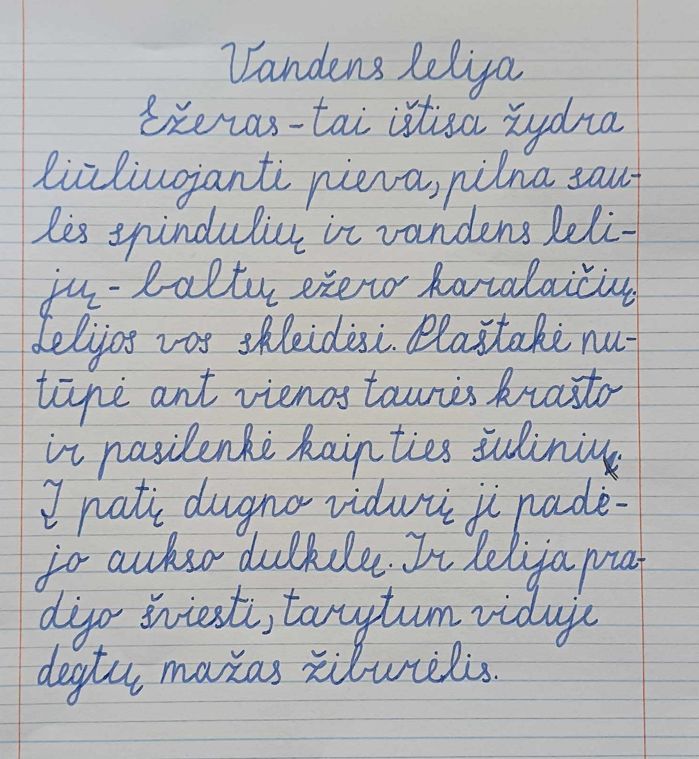 Vandens lelija
Ežeras - tai ištisa žydra
liūliuojanti pieva, pilna sau-
lės spindulių ir vandens leli-
jų - baltų ežero karalaičių.
Lelijos vos skleidėsi. Plaštakė nu-
tūpė ant vienos taurės krašto
ir pasilenkė kaip ties šuliniu.
Į patį dugno vidurį ji padė-
jo aukso dulkelę. Ir lelija pra-
dėjo šviesti, tarytum viduje
degtų mažas žiburėlis.